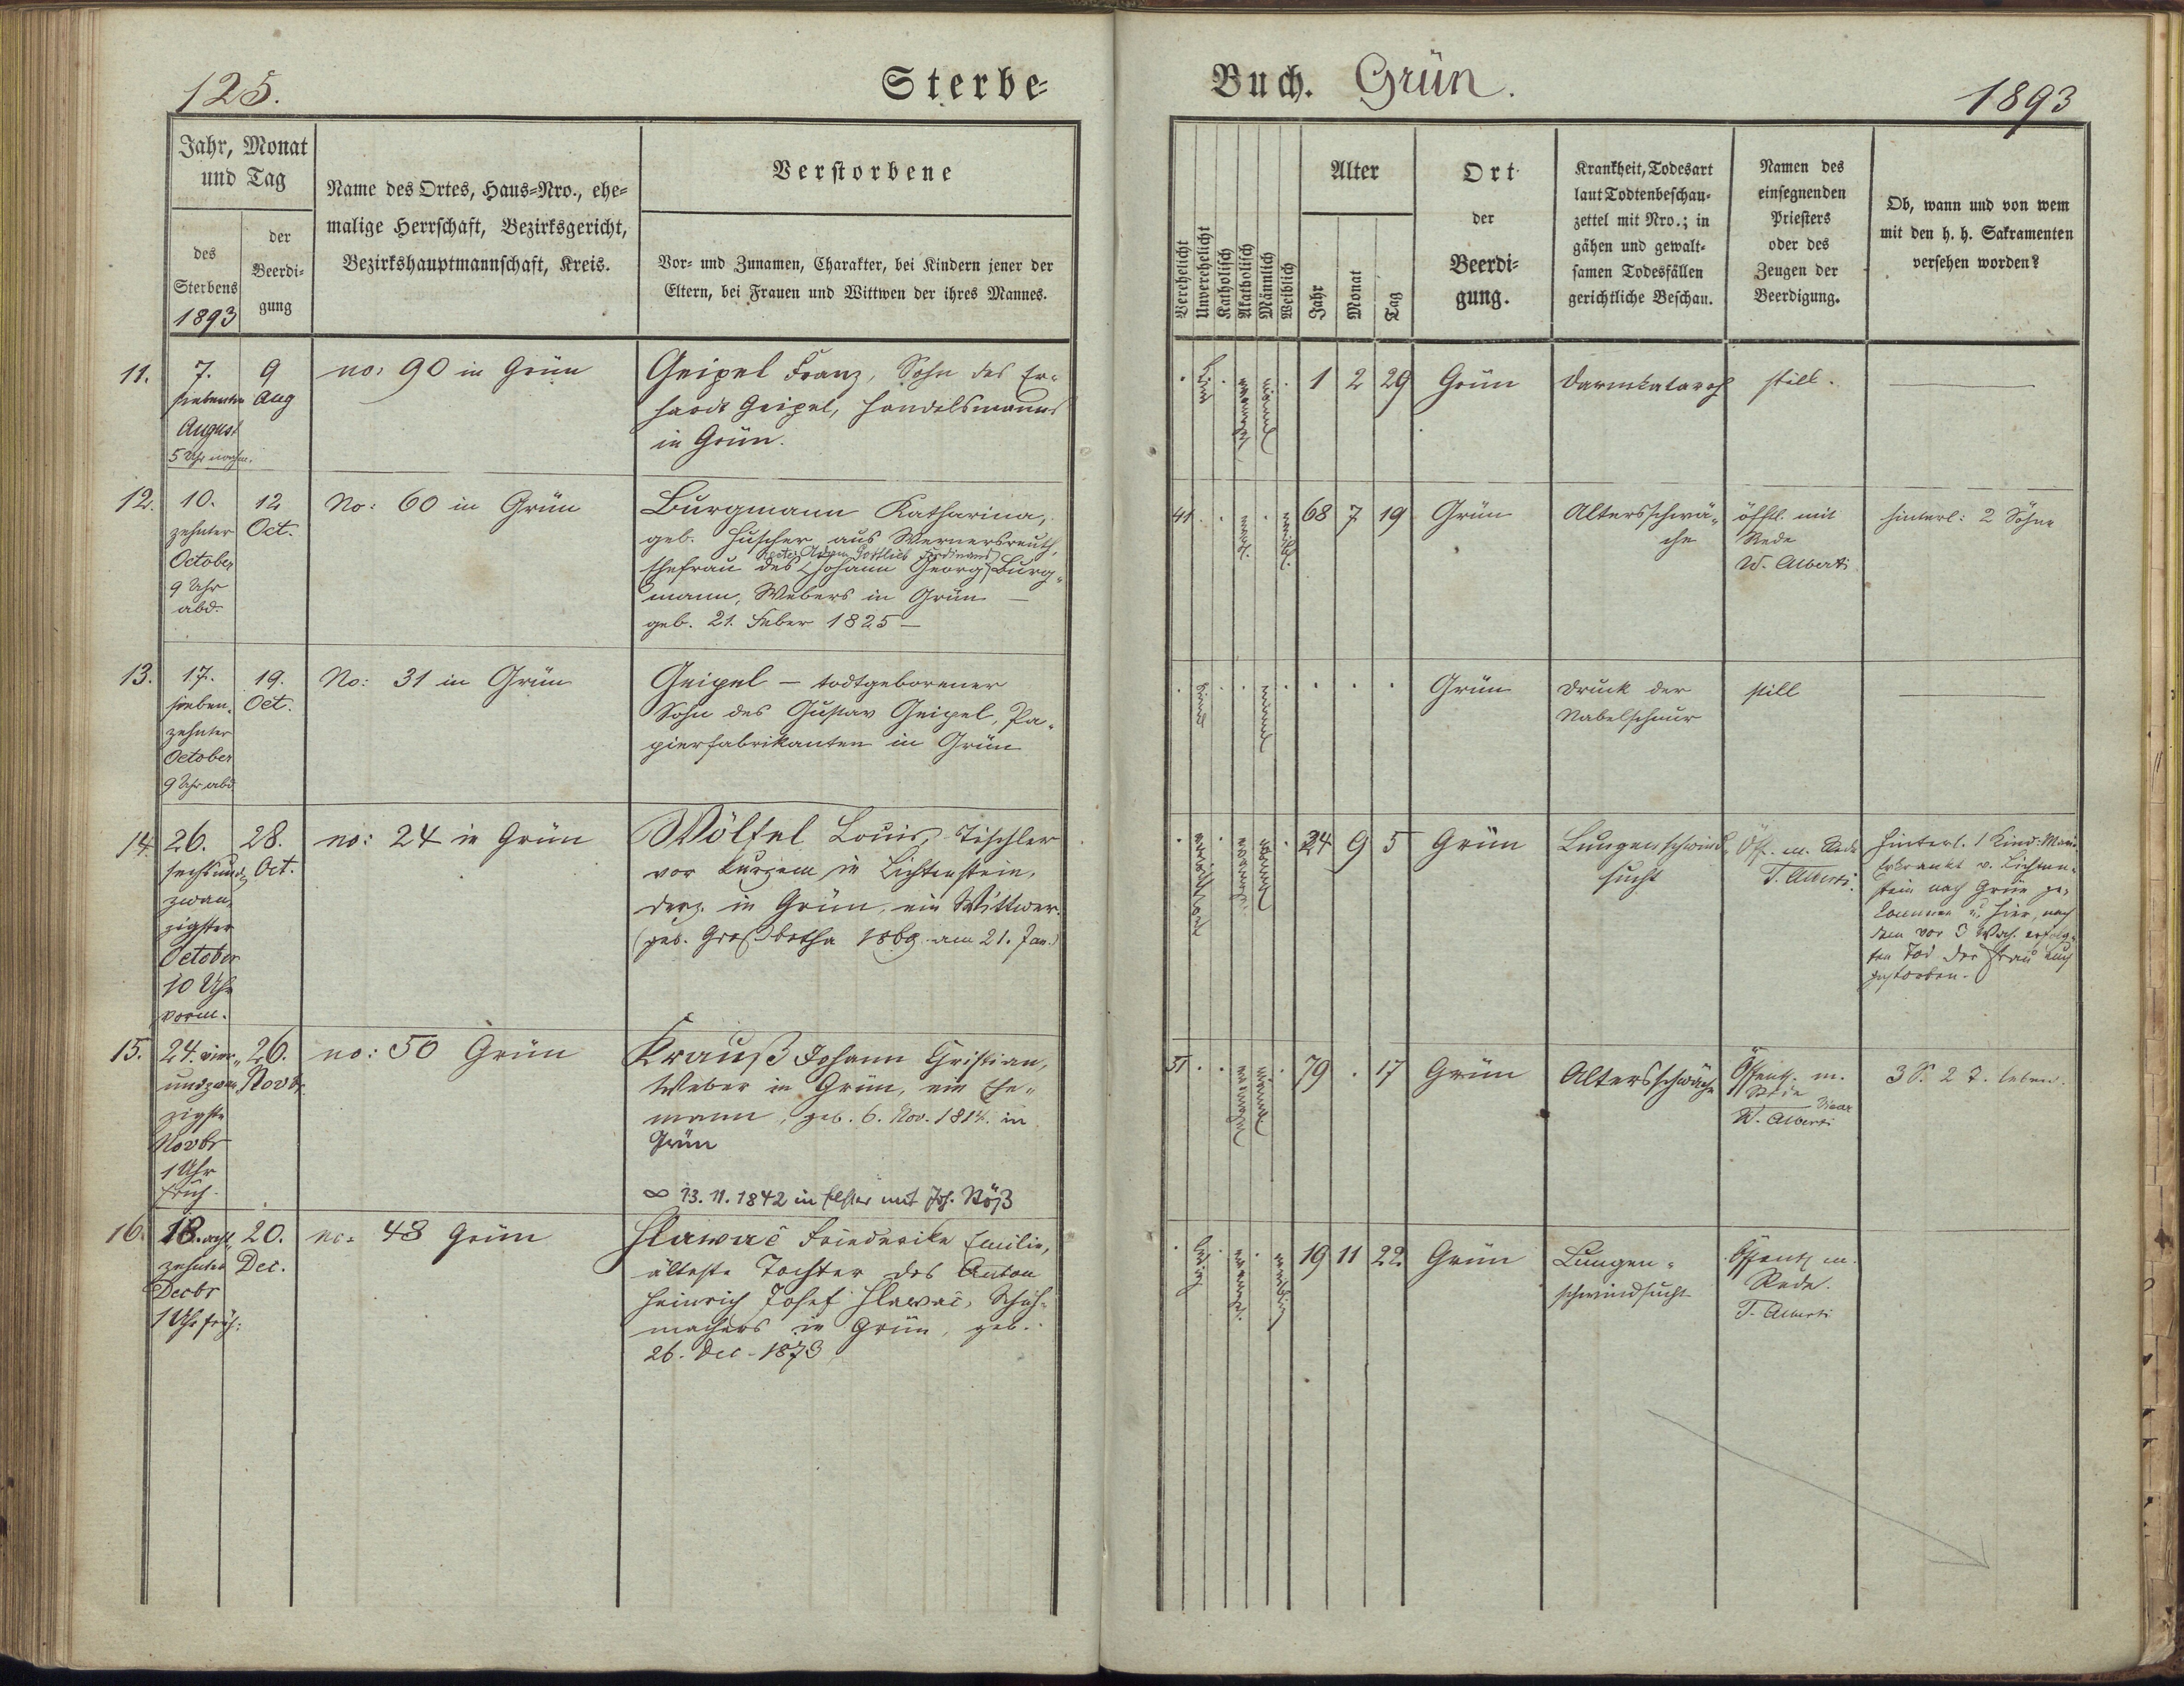 125.
Sterbe-
Buch. Grün.
1893
Jahr, Monat
und Tag
des
Sterbens
1893
der
Beerdi-
gung
Name des Ortes, Haus-Nro., ehe-
malige Herrschaft, Bezirksgericht,
Bezirkshauptmannschaft, Kreis.
Verstorbene
Vor- und Zunamen, Charakter, bei Kindern jener der
Eltern, bei Frauen und Wittwen der ihres Mannes.
Verehelicht
Unverehelicht
Katholisch
Akatholisch
Männlich
Weiblich
Alter
Jahr
Monat
Tag
Ort
der
Beerdi-
gung.
Krankheit, Todesart
laut Todtenbeschau-
zettel mit Nro.; in
gähen und gewalt-
samen Todesfällen
gerichtliche Beschau.
Namen des
einsegnenden
Priesters
oder des
Zeugen der
Beerdigung.
Ob, wann und von wem
mit den h. h. Sakramenten
versehen worden?
11.
7.
siebenter
August
5 Uhr nachm.
9
Aug
no: 90 in Grün
Geipel Franz, Sohn des Er-
hardt Geipel, Handelsmanns
in Grün.
1 2 29
Grün
Darmkatarrh
still.
12.
10.
zehnter
October
9 Uhr
abd.
12
Oct.
No: 60 in Grün
Burgmann Katharina,
geb. Huscher aus Wernersreuth,
Adam Gottlieb Ferdinand
Ehefrau des Johann Georg Burg-
mann, Webers in Grün —
geb. 21. Feber 1825 —
41
68 7 19
Grün
Altersschwä-
che
öfftl. mit
Rede
W. Alberti
hinterl: 2 Söhne
13.
17.
sieben-
zehnter
October
9 Uhr abd.
19.
Oct.
No: 31 in Grün
Geipel — todtgeborener
Sohn des Gustav Geipel, Pa-
pierfabrikanten in Grün
Grün
Druck der
Nabelschnur
still
14.
26.
sechsund-
zwan-
zigster
October
10 Uhr
vorm.
28.
Oct.
no: 24 in Grün
Wölfel Louis, Tischler
vor kurzem in Lichtenstein,
derz. in Grün, ein Wittwer.
(geb. Großbotha 1869 am 21. Jan.)
24 9 5
Grün
Lungenschwind-
sucht
Öff. m. Rede
T. Alberti.
Hinterl. 1 Kind:
Erkrankt v. Lichten-
stein nach Grün ge-
kommen u. hier, nach
dem vor 3 Woch. erfolg-
ten Tod der Frau auch
gestorben.
15.
24. vier-
undzwan-
zigste
Novbr
1 Uhr
früh.
26.
Novbr.
no: 50 Grün
Krauß Johann Christian,
Weber in Grün, ein Ehe-
mann, geb. 6. Nov. 1814. in
Grün
∞ 13. 11. 1842 in Elster mit
51
79 . 17
Grün
Altersschwäche
Öffentl. m.
Rede
W. Alberti Vicar
3 S. 2 T. leben.
16.
18. acht-
zehnter
Decbr
1 Uhr früh.
20.
Dec.
no: 48 Grün
Hlawač Friederike Emilie,
älteste Tochter des Anton
Heinrich Josef Hlawač, Schuh-
machers in Grün, geb.
26. Dec. 1873
ledig
19 11 22
Grün
Lungen-
schwindsucht
Öffentl m.
Rede.
T. Alberti